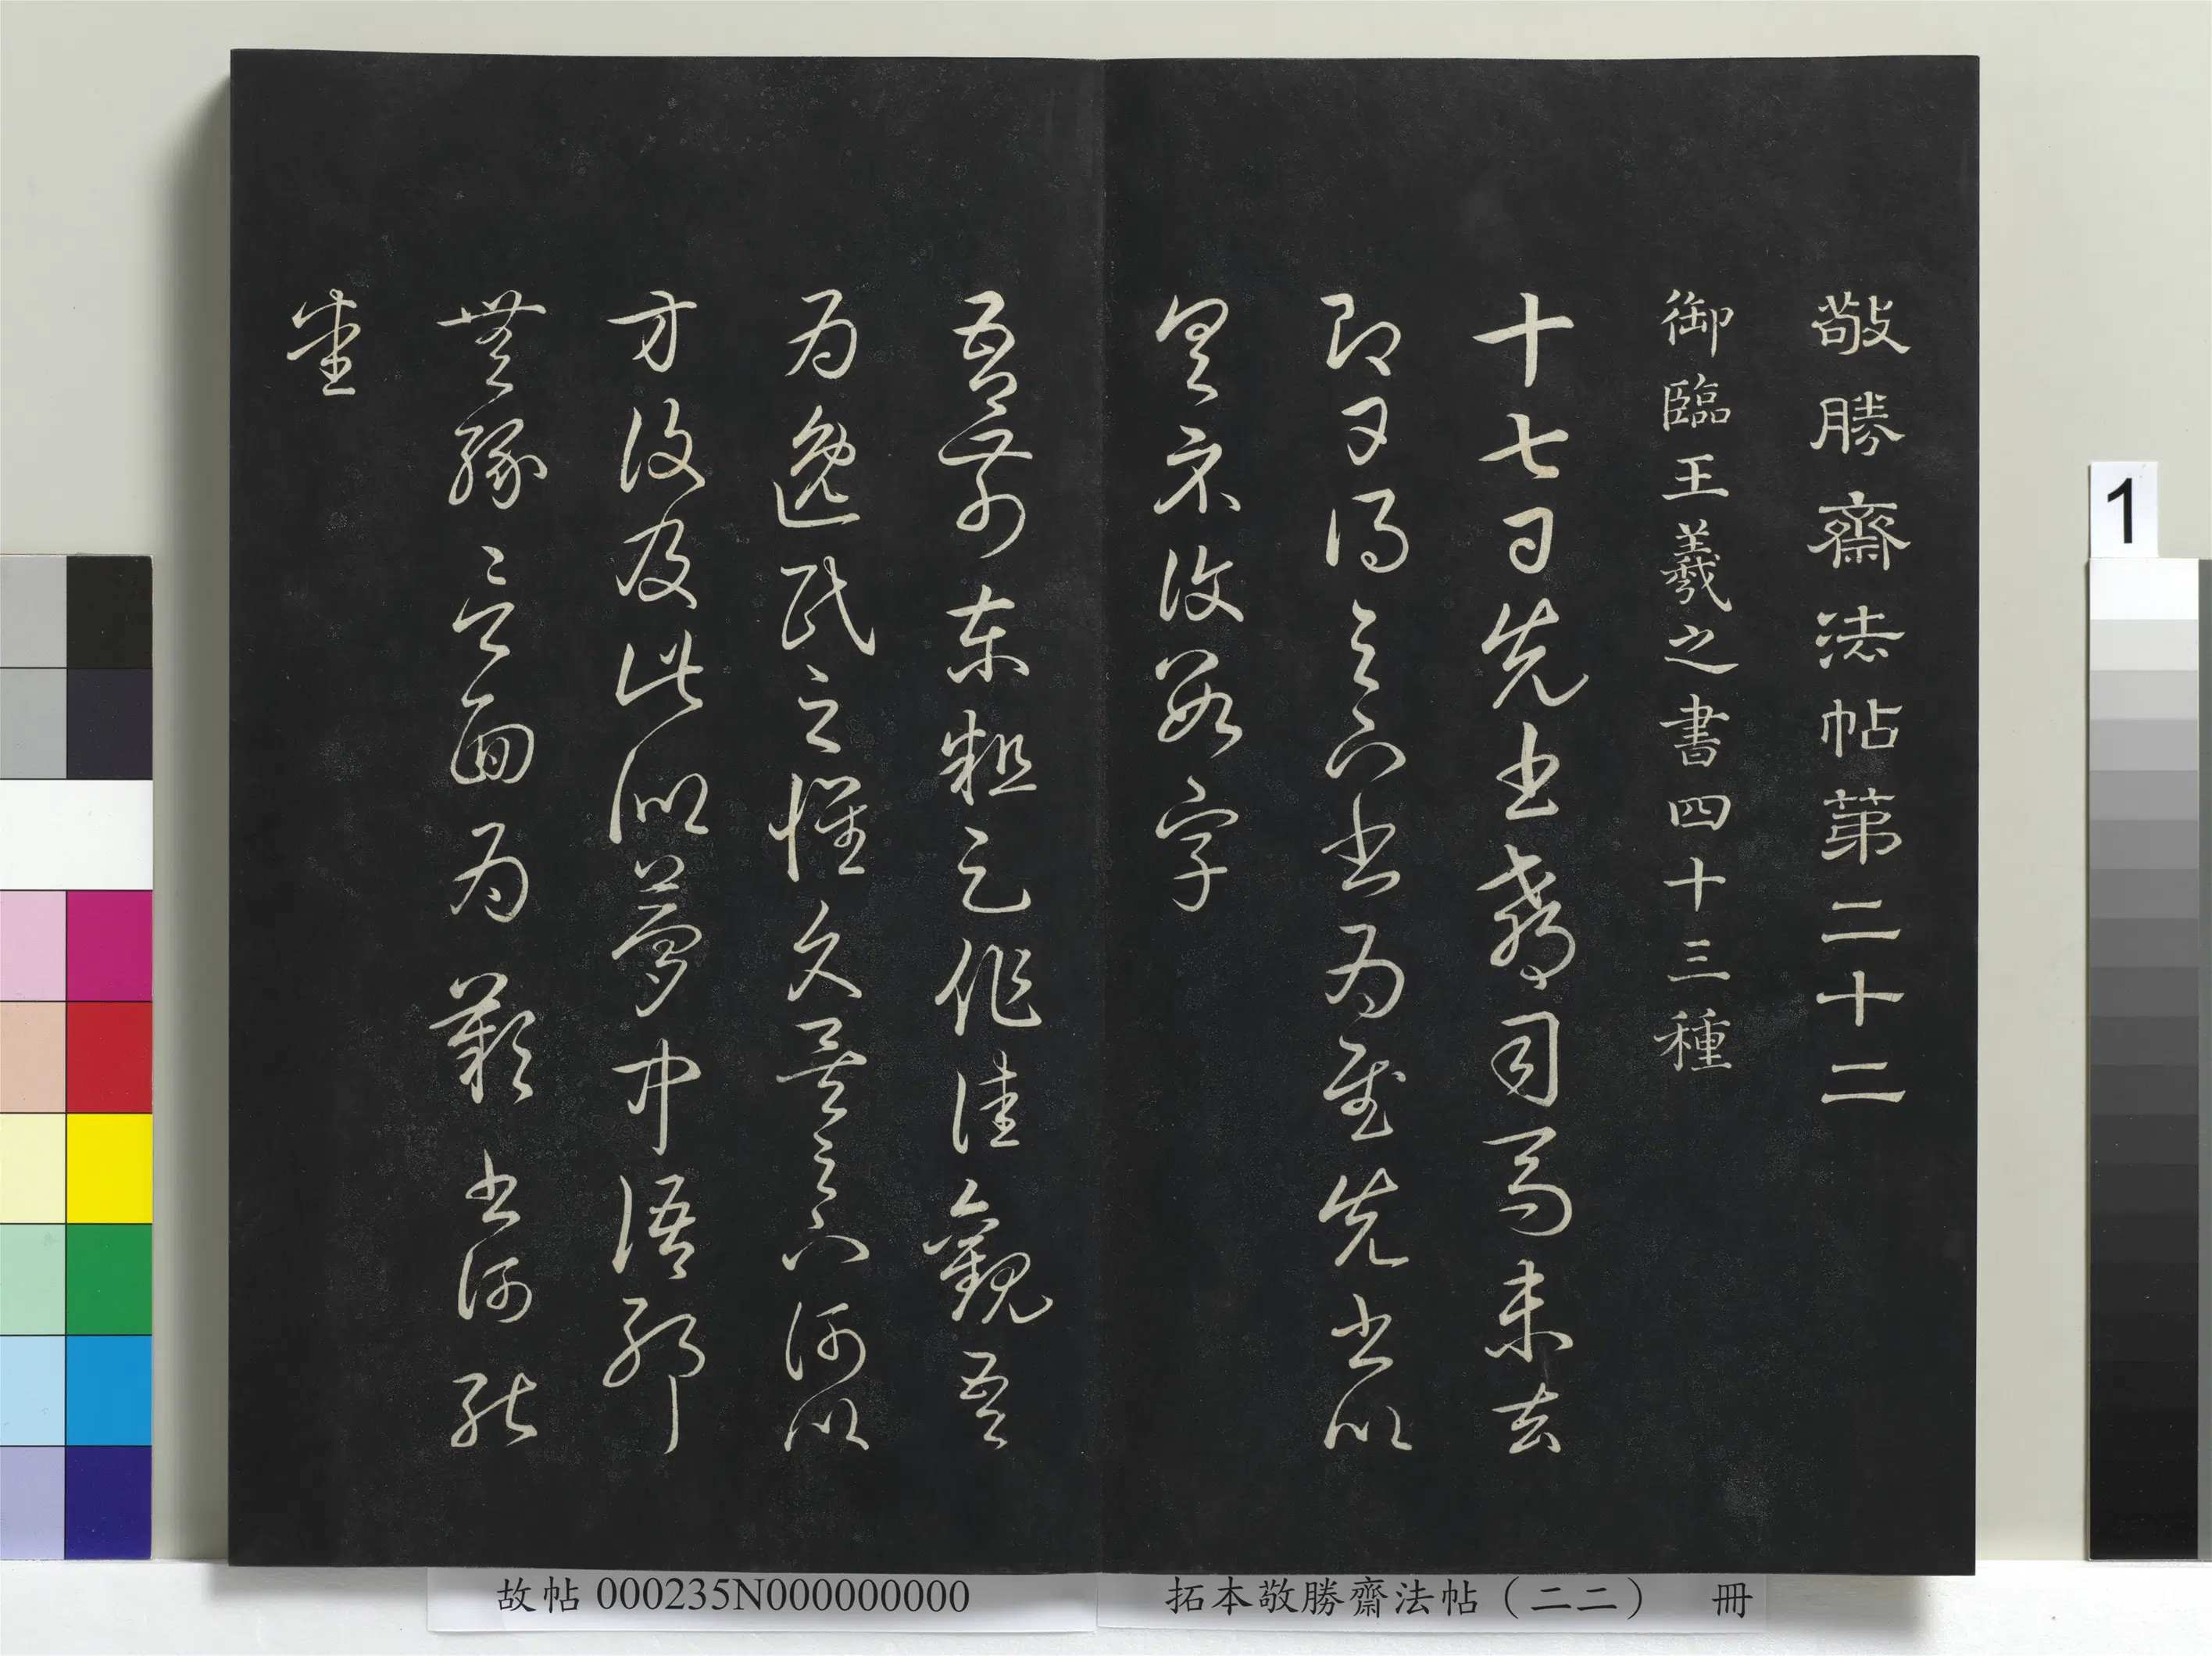 敬勝齋法帖第二十二
御臨王羲之書四十三種
十七日先書郗司馬未去
即日得足下書為慰先書以
具示復數字
吾前東粗足作佳觀吾
為逸民之懷久矣足下何以
方復及此似夢中語耶
無緣言面為歎書何能
悉
拓本敬勝齋法帖（二二） 冊
故帖 000235N000000000
1